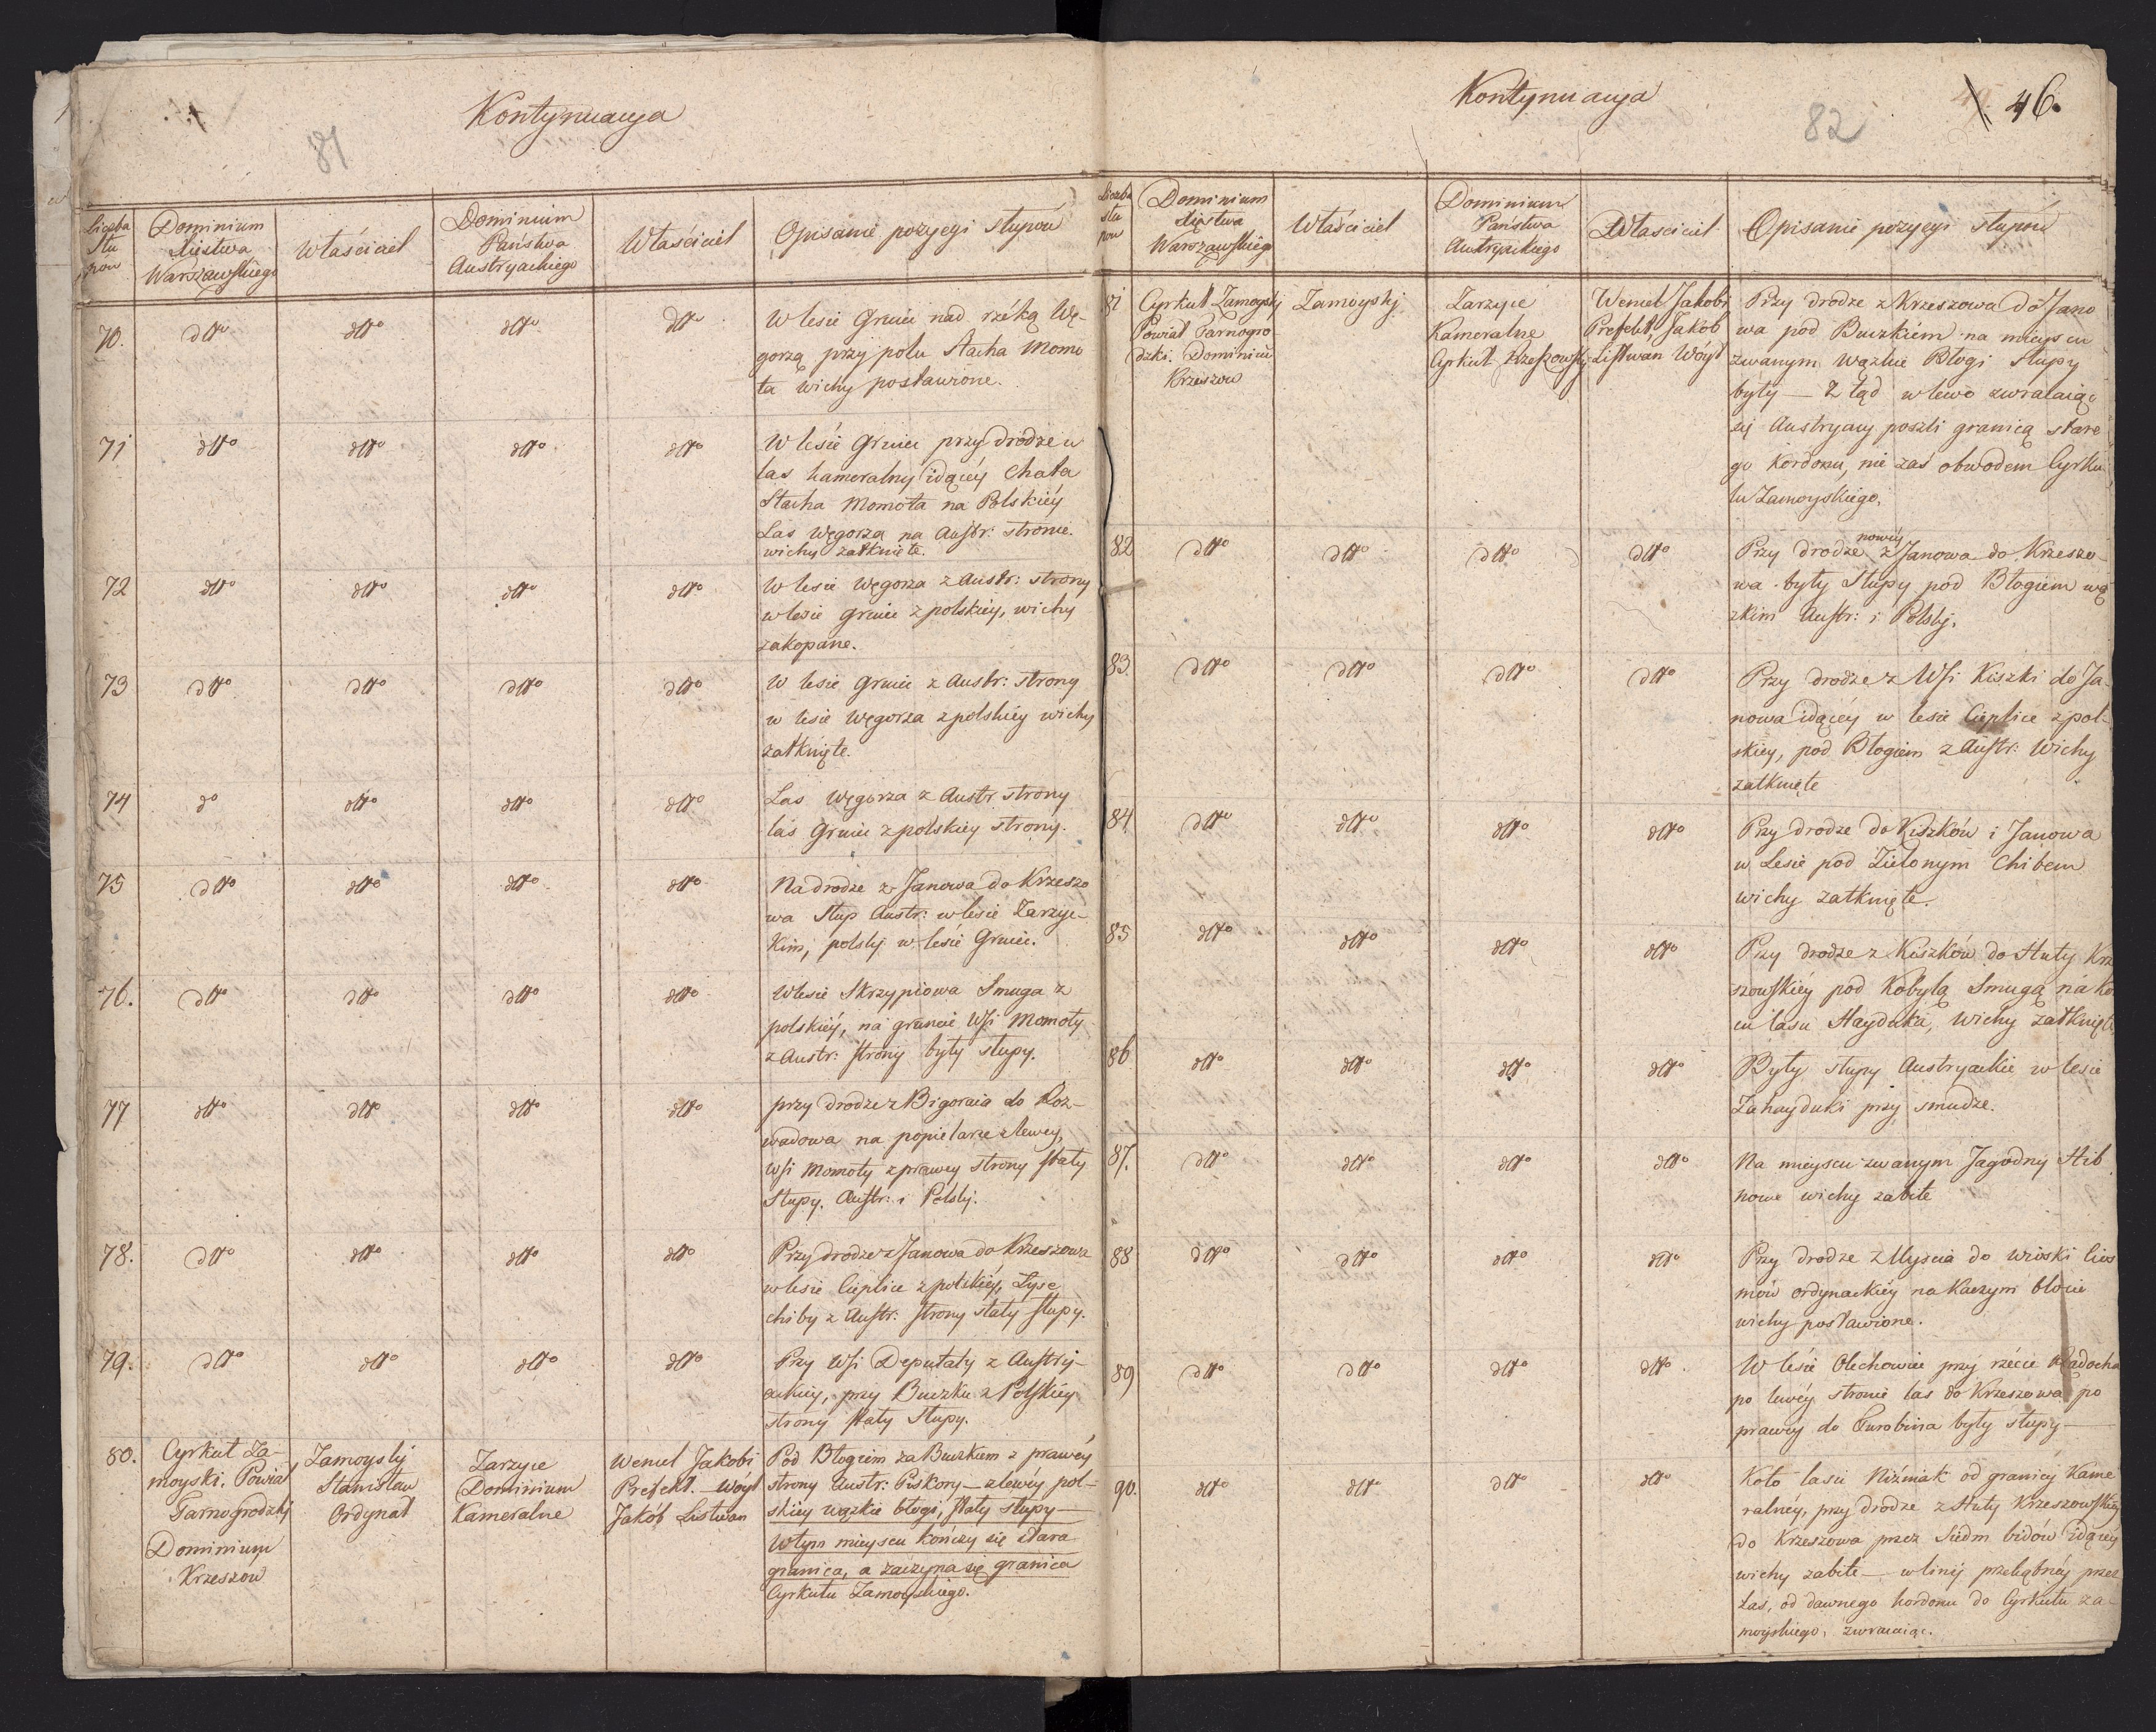 Kontynuacya
81
Liczba Słu pów
Dominium Xięstwa Warszawskiego
Właściciel
Dominium Państwa Austryackiego
Właściciel
Opisanie pozycyi słupów
70. dtto dtto dtto dtto
W lesie Gruic nad rzéką Wę-
gorzą przy polu Stacha Momo
ta wichy postawione.
71 dtto dtto dtto dtto
W lesie Gruic przy drodze w
las kameralny idącéy Chata
Stacha Momota na Polskiéy
Las Węgorza na Austr: stronie.
wichy zatknięte.
72 dtto dtto dtto dtto
W lesie Węgorza z Austr: strony
w lesie Gruic z polskiey, wichy
zakopane.
73 dtto dtto dtto dtto
W lesie Gruic z Austr: strony
w lesie Węgorza z polskiéy wichy
zatknięte.
74 do dtto dtto dtto
Las Węgorza z Austr strony
las Gruic z polskiey strony.
75 dtto dtto dtto dtto
Na drodze z Janowa do Krzeszo
wa słup Austr: w lesie Zarzyc-
kim, polski w lesie Gruic.
76. dtto dtto dtto dtto
W lesie Skrzypiowa Smuga z
polskiéy, na gruncie Wsi Momoty
z Austr: strony były słupy.
77 dtto dtto dtto dtto
przy drodze z Bigoraia do Roz-
wadowa na popielarze z lewey,
Wsi Momoty z prawey strony stały
Słupy. Austr: i Polski.
78. dtto dtto dtto dtto
Przy drodze z Janowa do Krzeszowa
w lesie Cieplice z polskiéy, Łyse
chiby z Austr: strony stały słupy.
79. dtto dtto dtto dtto
Przy Wsi Deputaty z Austry-
ackiey, przy Buczku z Polskiéy
strony stały Słupy.
80. Cyrkuł Za-
moyski. Powiat
Tarnogrodzki
Dominium
Krzeszów
Zamoyski
Stanisław
Ordynat
Zarzyce
Dominium
Kameralne
Wencel Jakobi
Prefekt. Wóyt
Jakób Listwan
Pod Błogiem za Buczkiem z prawéy
strony Austr: Piskory z lewéy pol-
skiéy wązkie błogi, stały słupy
W tym mieyscu kończy się stara
granica, a zaczyna się granica
Cyrkułu Zamoyskiego.
Kontynuacya
82
46.
Liczba słu pów
Dominium Xięstwa Warszawskiego
Właściciel
Dominium Państwa Austryackiego
Właściciel
Opisanie pozycyi słupów
81 Cyrkuł Zamoyski
Powiat Tarnogro
dzki. Dominium
Krzeszow
Zamoyski
Zarzyce
Kameralne
Cyrkuł Rzeszowski
Wencel Jakobi
Prefekt, Jakób
Listwan Wóyt
Przy drodze z Krzeszowa do Jano
wa pod Buczkiem na mieyscu
zwanym wązkie Błogi Słupy
były — Ztąd w lewo zwracaiąc
się Austryacy poszli granicą stare
go Kordonu, nie zaś obwodem Cyrku
łu Zamoyskiego.
82 dtto dtto dtto dtto
Przy drodze nowéy z Janowa do Krzeszo-
wa były Słupy pod Błogiem wą
zkim Austr: i Polski.
83. dtto dtto dtto dtto
Przy drodze z Wsi Kiszki do Ja-
nowa idącéy w lesie Cieplice z pol-
skiey, pod Błogiem z Austr: Wichy
zatknięte
84 dtto dtto dtto dtto
Przy drodze do Kiszków i Janowa
w Lesie pod Zielonym Chibem
wichy zatknięte.
85 dtto dtto dtto dtto
Przy drodze z Kiszków do Huty Krze
szowskiéy pod Kobylą Smugą na ko
cu lasu Hayduka, Wichy zatknięte
86 dtto dtto dtto dtto
Były słupy Austryackie w lesie
Zahayduki przy smudze.
87. dtto dtto dtto dtto
Na mieyscu zwanym Jagodny Hib
nowe wichy zabite
88 dtto dtto dtto dtto
Przy drodze z Uyscia do wioski Cios
mów ordynackiéy na Kaczym błocie
wichy postawione.
89 dtto dtto dtto dtto
W lesie Olechowiec przy rzéce Radocha
po lewéy stronie las do Krzeszowa po
prawéy do Turobina były słupy
90. dtto dtto dtto dtto
Koło lasu Niźniak od granicy Kame
ralney, przy drodze z Huty Krzeszowskiéy
do Krzeszowa przez Siedm bidów idącéy
wichy zabite — w linij przerąbnéy przez
Las, od dawnego kordonu do Cyrkułu Za-
moyskiego, zwracaiąc.